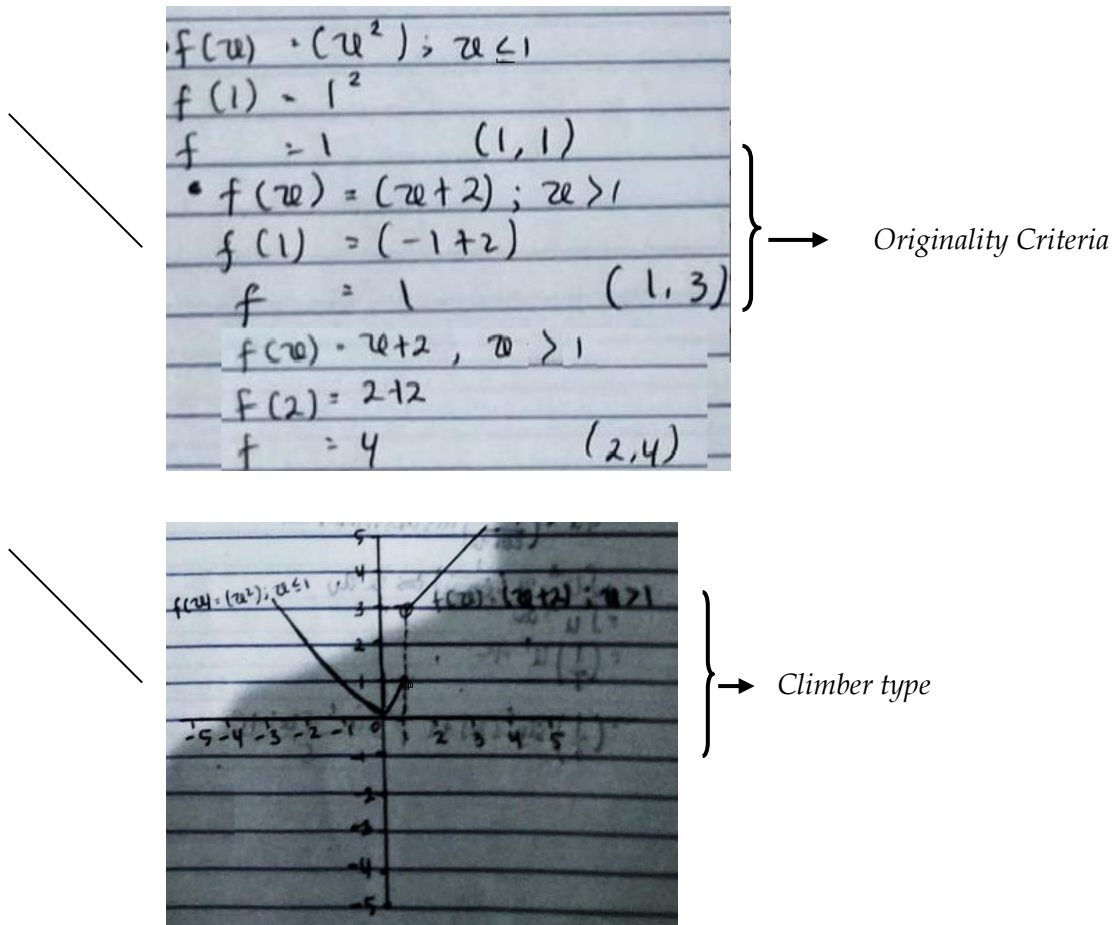 • f(x) = (x²); x ≤ 1
f(1) = 1²
f = 1 (1,1)
• f(x) = (x+2); x > 1
f(1) = (-1+2)
f = 1 (1,3)
f(x) = x+2, x > 1
f(2) = 2+2
f = 4 (2,4)
Originality Criteria
5
4
f(x) = (x²); x ≤ 1
3
f(x) = (x+2); x > 1
2
1
-5 -4 -3 -2 -1 0 1 2 3 4 5
-1
-2
-3
-4
-5
Climber type